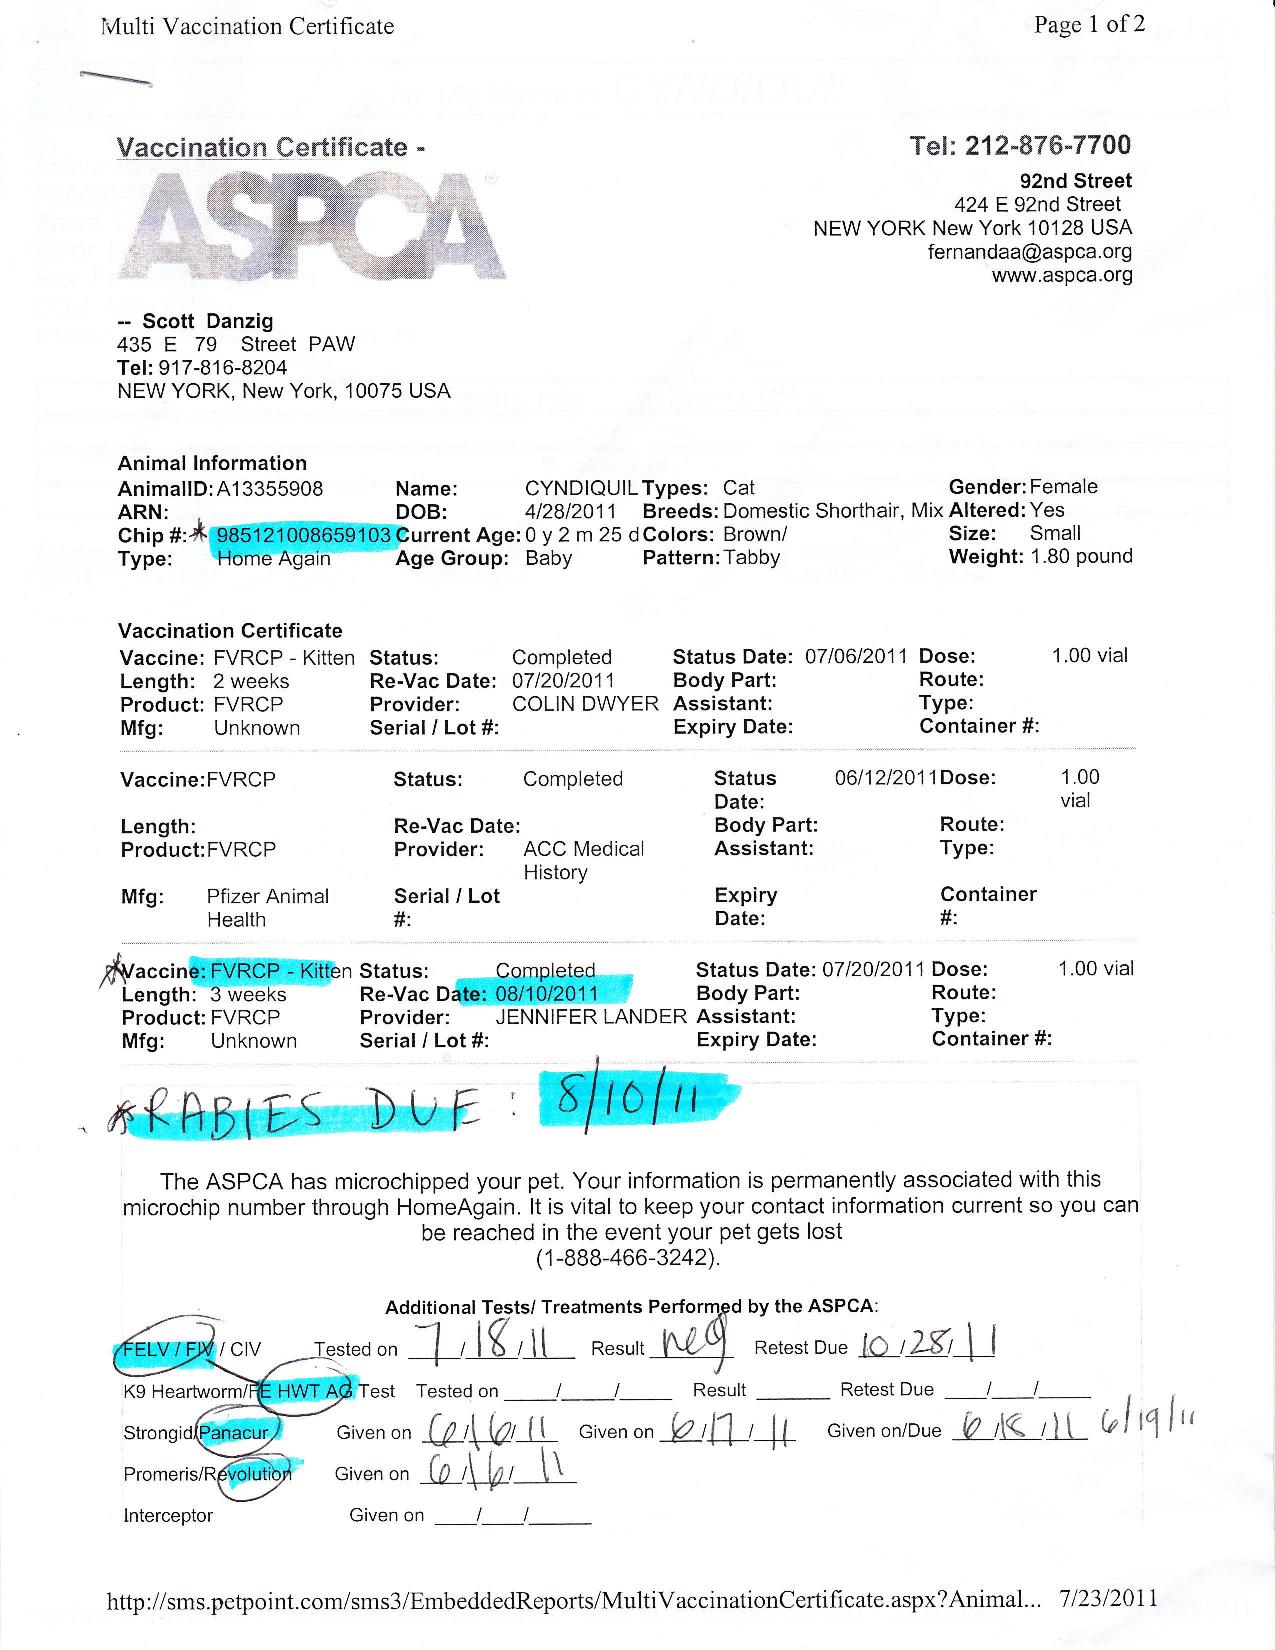 Multi Vaccination Certificate Page 1 of 2
Vaccination Certificate - Tel: 212-876-7700
ASPCA
92nd Street
424 E 92nd Street
NEW YORK New York 10128 USA
fernandaa@aspca.org
www.aspca.org
-- Scott Danzig
435 E 79 Street PAW
Tel: 917-816-8204
NEW YORK, New York, 10075 USA
Animal Information
AnimalID: A13355908 Name: CYNDIQUIL Types: Cat Gender: Female
ARN: DOB: 4/28/2011 Breeds: Domestic Shorthair, Mix Altered: Yes
Chip #: * 985121008659103 Current Age: 0 y 2 m 25 d Colors: Brown/ Size: Small
Type: Home Again Age Group: Baby Pattern: Tabby Weight: 1.80 pound
Vaccination Certificate
Vaccine: FVRCP - Kitten Status: Completed Status Date: 07/06/2011 Dose: 1.00 vial
Length: 2 weeks Re-Vac Date: 07/20/2011 Body Part: Route:
Product: FVRCP Provider: COLIN DWYER Assistant: Type:
Mfg: Unknown Serial / Lot #: Expiry Date: Container #:
Vaccine: FVRCP Status: Completed Status 06/12/2011 Dose: 1.00
Date: vial
Length: Re-Vac Date: Body Part: Route:
Product: FVRCP Provider: ACC Medical Assistant: Type:
History
Mfg: Pfizer Animal Serial / Lot Expiry Container
Health #: Date: #:
* Vaccine: FVRCP - Kitten Status: Completed Status Date: 07/20/2011 Dose: 1.00 vial
Length: 3 weeks Re-Vac Date: 08/10/2011 Body Part: Route:
Product: FVRCP Provider: JENNIFER LANDER Assistant: Type:
Mfg: Unknown Serial / Lot #: Expiry Date: Container #:
* RABIES DUE : 8/10/11
The ASPCA has microchipped your pet. Your information is permanently associated with this
microchip number through HomeAgain. It is vital to keep your contact information current so you can
be reached in the event your pet gets lost
(1-888-466-3242).
Additional Tests/ Treatments Performed by the ASPCA:
FELV / FIV / CIV Tested on 7/18/11 Result neg Retest Due 10/28/11
K9 Heartworm/FE HWT AG Test Tested on / / Result Retest Due / /
Strongid/Panacur Given on 6/16/11 Given on 6/17/11 Given on/Due 6/18/11 6/19/11
Promeris/Revolution Given on 6/16/11
Interceptor Given on / /
http://sms.petpoint.com/sms3/EmbeddedReports/MultiVaccinationCertificate.aspx?Animal... 7/23/2011